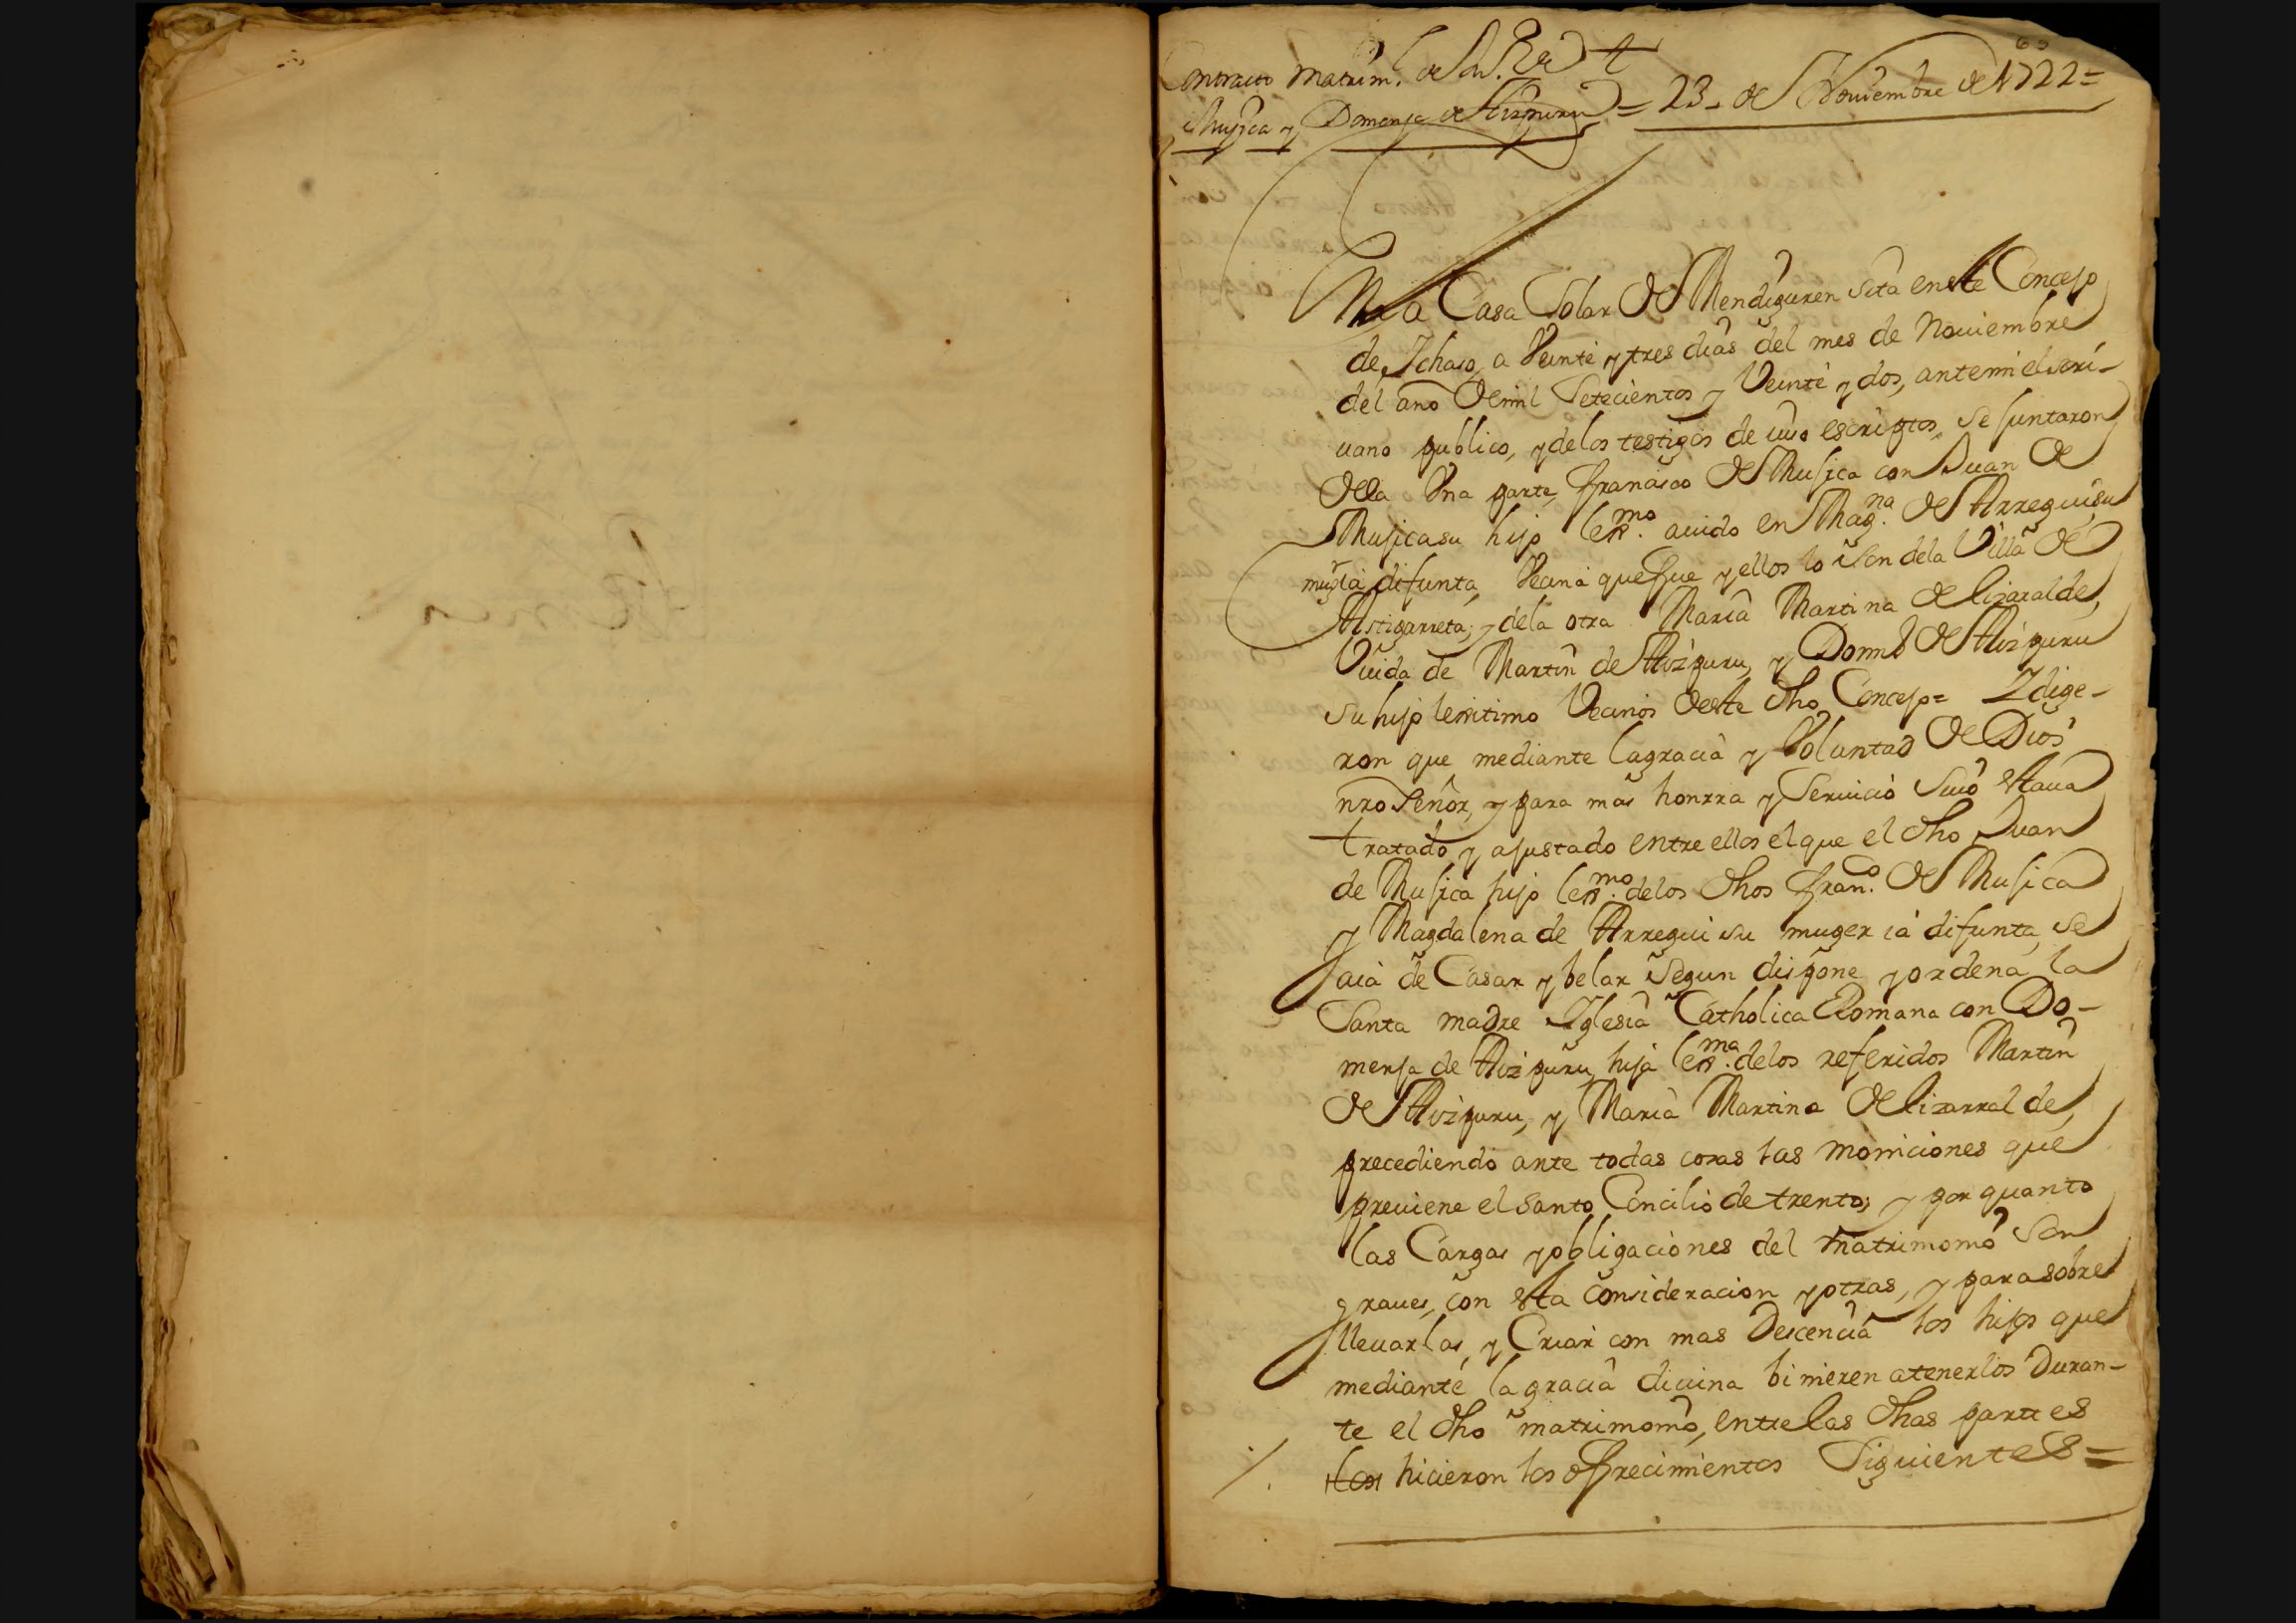 Contracto Matrim.l de Ju.o de
Mujica y Domenja de Aizpuru = 23 - de Nouiembre de 1722 =
En la Casa Solar de Mendiguren sita en este Concejo
de Ichaso, a Veinte y tres dias del mes de Nouiembre
del año de mil Setecientos y Veinte y dos, ante mi el scri-
uano publico, y de los testigos de iuso escriptos, se juntaron
de la Vna parte, Francisco de Mujica con Juan de
Mujica su hijo lexmo. auido en Magna. de Arregui, su
mug.r ia difunta, Vecina que fue y ellos lo son de la Villa de
Astigarreta; y de la otra Maria Martina de lizaralde,
Viuda de Martin de Aizpuru, y Domo. de Aizpuru
su hijo lexitimo Vecinos deste dho Concejo = I dige-
ron que mediante la gracia y Voluntad de Dios
nro Señor, y para mas honrra y Seruicio Suio estaua
tratado y ajustado entre ellos el que el dho Juan
de Mujica hijo lexmo. de los dhos Fran.co de Mujica
y Magdalena de Arregui su muger ia difunta, se
aia de Casar y belar Segun dispone y ordena la
Santa madre Iglesia Catholica Romana con Do-
menja de Aizpuru, hija lexma. de los referidos Martin
de Aizpuru, y Maria Martina de lizarralde,
precediendo ante todas cosas las moniciones que
preuiene el santo Concilio de trento; y por quanto
las Cargas y obligaciones del matrimonio Son
graues, con esta consideracion y otras, y para sobre
lleuarlas, y Criar con mas Descencia los hijos que
mediante la gracia diuina binieren a tenerlos Duran-
te el dho matrimonio, entre las dhas partes
los hicieron los ofrecimientos Siguientes =